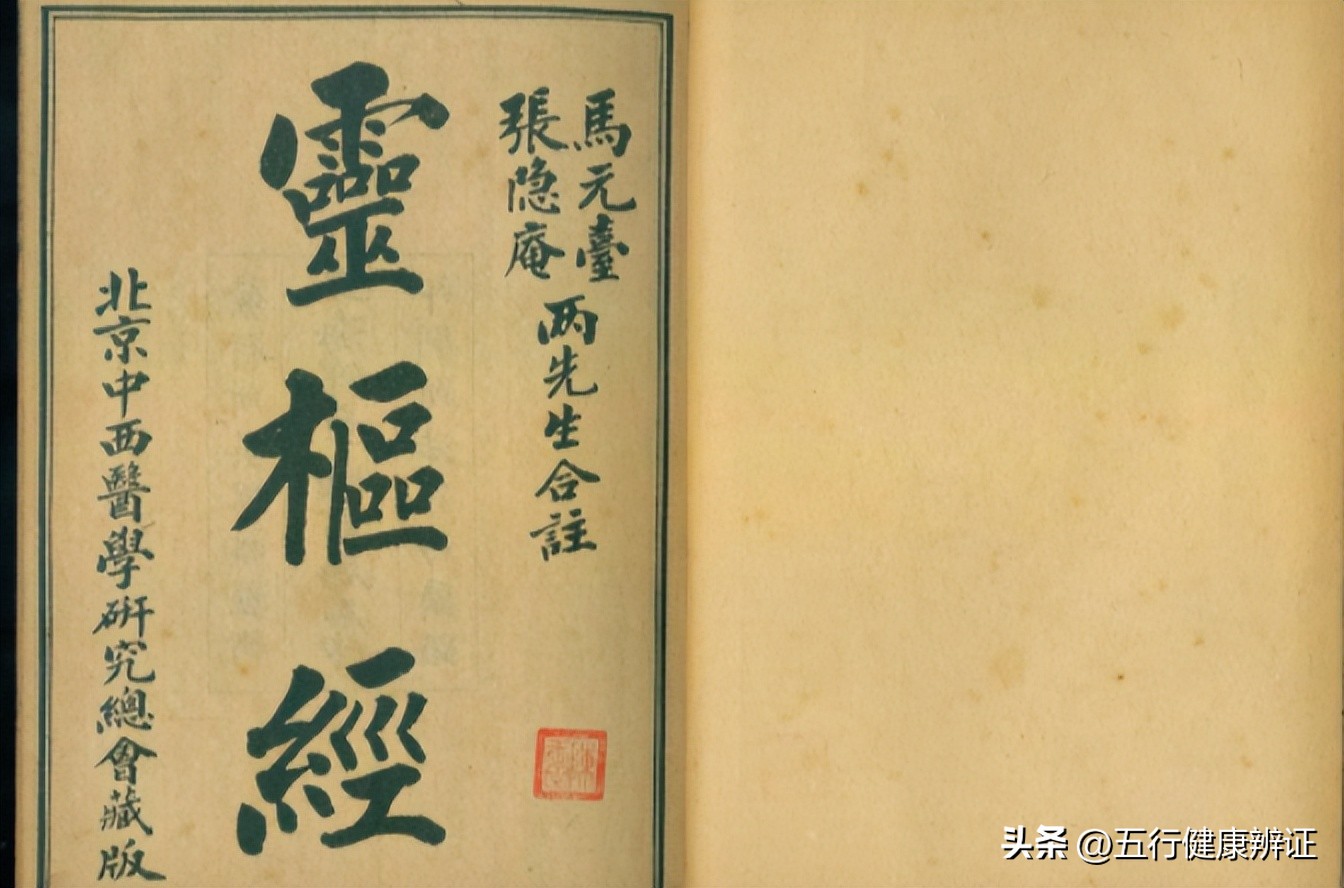 馬元臺
張隐庵
两先生合註
靈樞經
北京中西醫學研究總會藏版
头条 @五行健康辨证